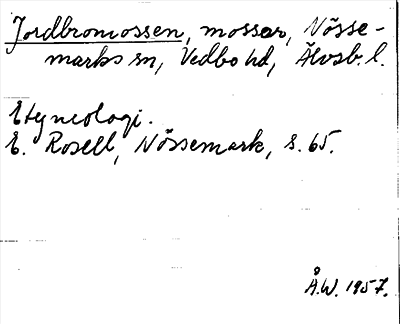 Jordbromossen, mossar, Nösse-
marks sn, Vedbo hd, Älvsb. l.
Etymologi.
E. Rosell, Nössemark, s. 65.
Å.W. 1957.